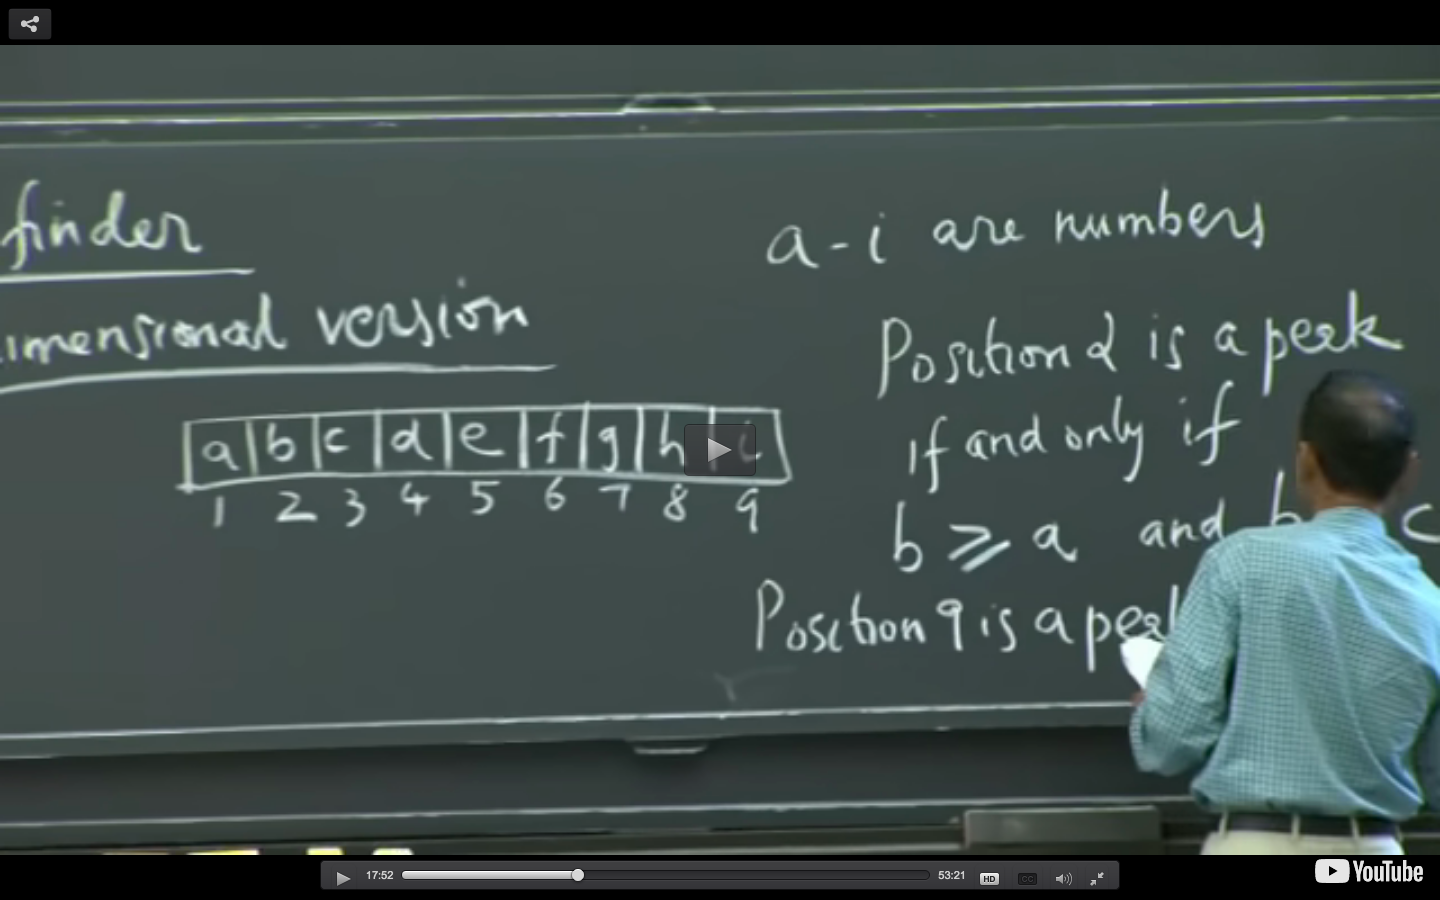 finder
imensional version
a b c d e f g h i
1 2 3 4 5 6 7 8 9
a - i are numbers
Position 2 is a peak
if and only if
b ≥ a and b c
Position 9 is a peak
17:52
53:21
HD
CC
YouTube